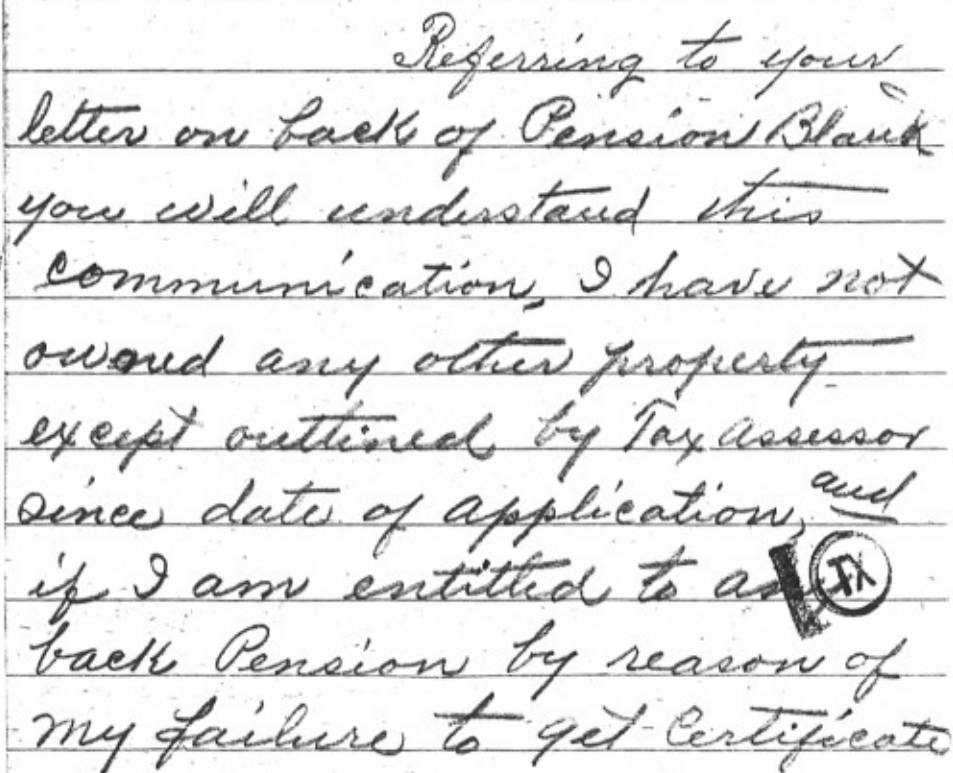 Referring to your
letter on back of Pension Blank
you will understand this
communication, I have not
owned any other property
except outtined by Tax assessor
since date of application, and
if I am entitled to
back Pension by reason of
my failure to get Certificate